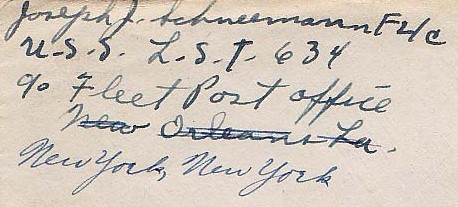 Joseph J. Schneemann F2/c
U.S.S. L.S.T. 634
c/o Fleet Post office
New Orleans La.
New York, New York